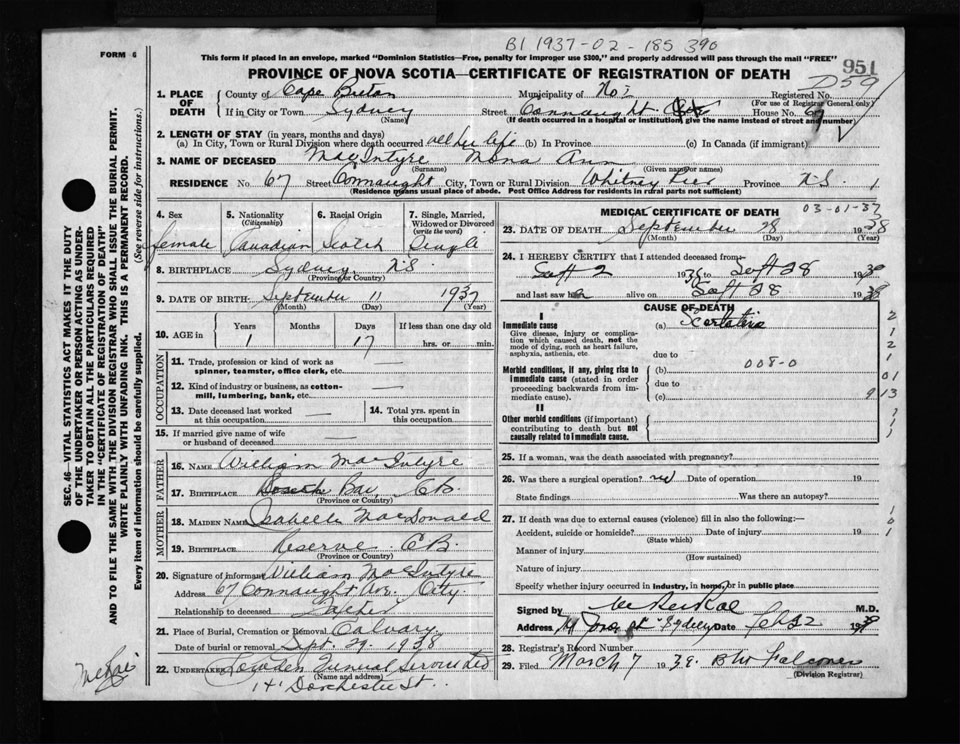 BI 1937-02-185390
FORM 6
This form if placed in an envelope, marked "Dominion Statistics—Free, penalty for improper use $300," and properly addressed will pass through the mail "FREE"
951
PROVINCE OF NOVA SCOTIA—CERTIFICATE OF REGISTRATION OF DEATH
1. PLACE OF DEATH
County of Cape Breton Municipality of Registered No.
(For use of Registrar General only)
If in City or Town Sydney Street Connaught House No. 67
(Name) (If death occurred in a hospital or institution, give the name instead of street and number)
2. LENGTH OF STAY (in years, months and days)
(a) In City, Town or Rural Division where death occurred all her life (b) In Province (c) In Canada (if immigrant)
3. NAME OF DECEASED MacIntyre Mona Ann
(Surname) (Given name or names)
RESIDENCE No. 67 Street Connaught City, Town or Rural Division Whitney Pier Province N.S. 1
(Residence means usual place of abode. Post Office Address for residents in rural parts not sufficient)
4. Sex
female
5. Nationality (Citizenship)
Canadian
6. Racial Origin
Scotch
7. Single, Married, Widowed or Divorced (write the word)
Single
8. BIRTHPLACE Sydney N.S.
(Province or Country)
9. DATE OF BIRTH September 11 1937
(Month) (Day) (Year)
10. AGE in Years Months Days If less than one day old
1 17 hrs. or min.
OCCUPATION
11. Trade, profession or kind of work as spinner, teamster, office clerk, etc. —
12. Kind of industry or business, as cotton-mill, lumbering, bank, etc. —
13. Date deceased last worked at this occupation —
14. Total yrs. spent in this occupation
15. If married give name of wife or husband of deceased —
FATHER
16. NAME William MacIntyre
17. BIRTHPLACE Bay, C.B.
(Province or Country)
MOTHER
18. MAIDEN NAME Isabelle MacDonald
19. BIRTHPLACE Reserve C.B.
(Province or Country)
20. Signature of informant William MacIntyre
Address 67 Connaught Ave. City.
Relationship to deceased Father
21. Place of Burial, Cremation or Removal Calvary
Date of burial or removal Sept. 29. 1938
22. Undertaker Funeral Service Ltd
(Name and address)
141 Dorchester St.
MEDICAL CERTIFICATE OF DEATH
03-01-37
23. DATE OF DEATH September 28 1938
(Month) (Day) (Year)
24. I HEREBY CERTIFY that I attended deceased from:—
Sept 2 1938 to Sept 28 1938
and last saw her alive on Sept 28 1938
CAUSE OF DEATH
I
Immediate cause
Give disease, injury or complication which caused death, not the mode of dying, such as heart failure, asphyxia, asthenia, etc
(a) Scarlatina
due to
Morbid conditions, if any, giving rise to immediate cause (stated in order proceeding backwards from immediate cause).
(b) 008-0
due to
(c)
II
Other morbid conditions (if important) contributing to death but not causally related to immediate cause.
25. If a woman, was the death associated with pregnancy?
26. Was there a surgical operation? no Date of operation 19
State findings Was there an autopsy?
27. If death was due to external causes (violence) fill in also the following:—
Accident, suicide or homicide? Date of injury 19
(State which)
Manner of injury
(How sustained)
Nature of injury
Specify whether injury occurred in industry, in home, or in public place
Signed by M.D.
Address Sydney Date
28. Registrar's Record Number
29. Filed March 7 1939. B W Falconer
(Division Registrar)
SEC. 46—VITAL STATISTICS ACT MAKES IT THE DUTY
OF THE UNDERTAKER OR PERSON ACTING AS UNDER-
TAKER TO OBTAIN ALL THE PARTICULARS REQUIRED
IN THE "CERTIFICATE OF REGISTRATION OF DEATH"
AND TO FILE THE SAME WITH THE DIVISION REGISTRAR WHO SHALL ISSUE THE BURIAL PERMIT.
WRITE PLAINLY WITH UNFADING INK. THIS IS A PERMANENT RECORD.
Every item of information should be carefully supplied. (See reverse side for instructions.)